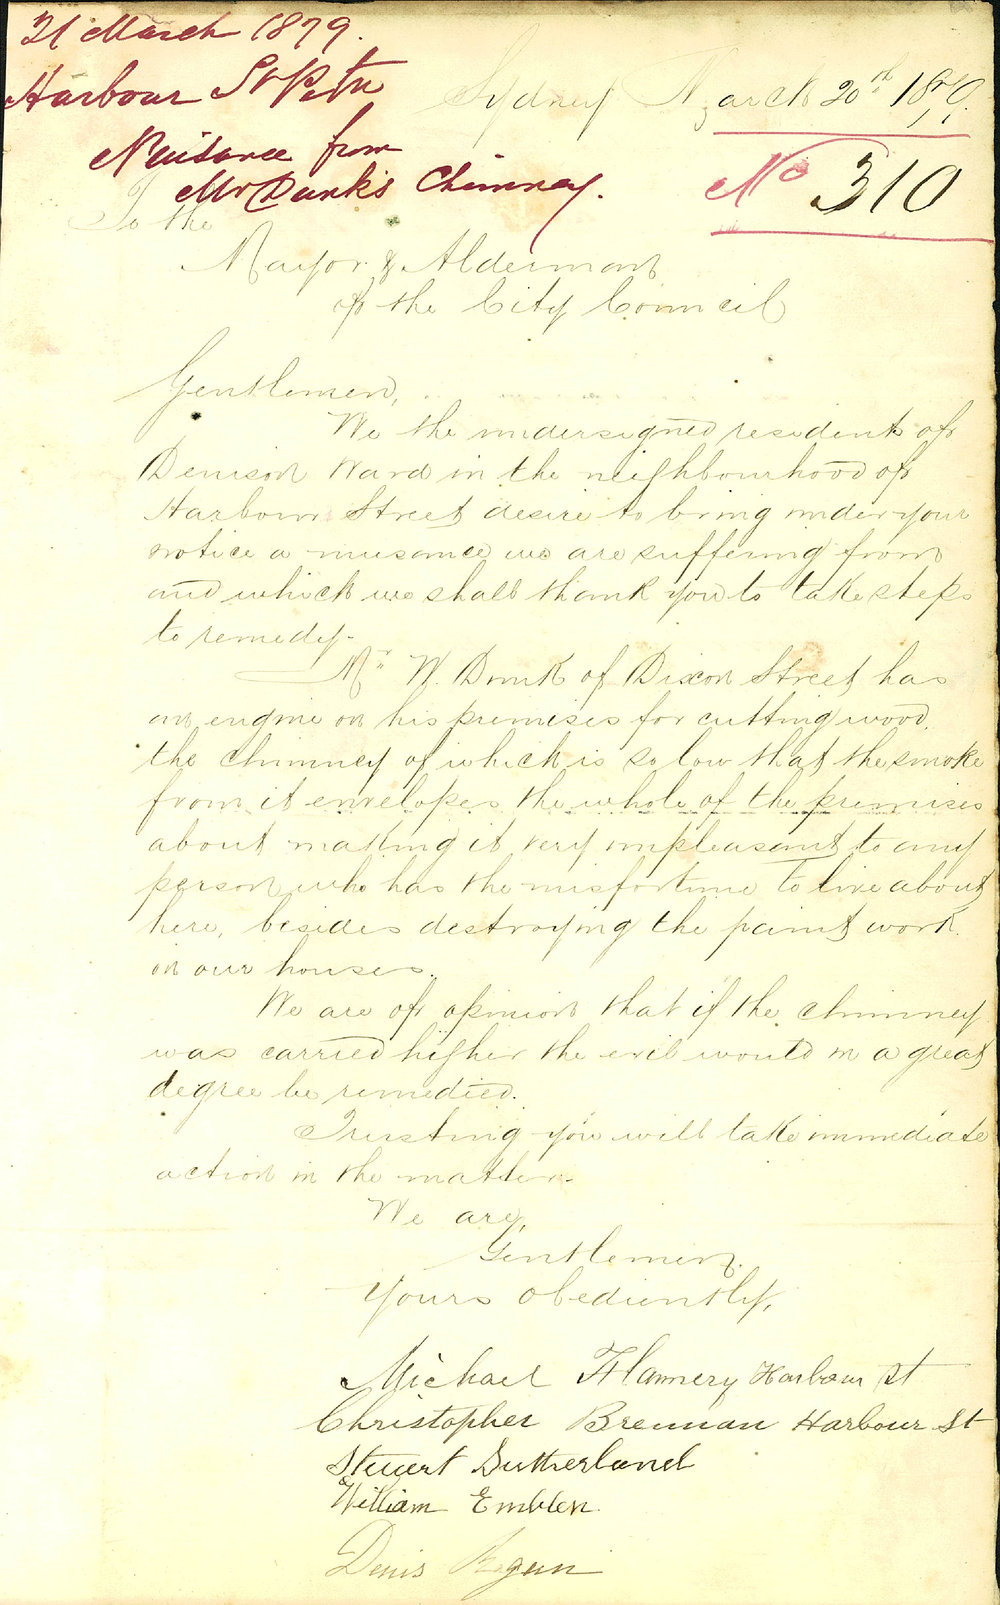 21 March 1879.
Harbour St Petn
Nuisance from
Mr Dunk's Chimney.
Sydney March 20th 1879.
No 310
To the
Mayor & Aldermont
of the City Council
Gentlemen,
We the undersigned resident of
Denison Ward in the neighbourhood of
Harbour Street desire to bring under your
notice a nuisance we are suffering from
and which we shall thank you to take steps
to remedy.
Mr W. Dunk of Dixon Street has
an engine on his premises for cutting wood,
the chimney of which is so low that the smoke
from it envelopes the whole of the premises
about making it very unpleasant to any
person who has the misfortune to live about
here, besides destroying the paint work
on our houses.
We are of opinion that if the chimney
was carried higher the evil would in a great
degree be remedied.
Trusting you will take immediate
action in the matter.
We are,
Gentlemen.
Yours obediently,
Michael Flannery Harbour St
Christopher Brennan Harbour St
Stuart Sutherland
William Emblen
Denis